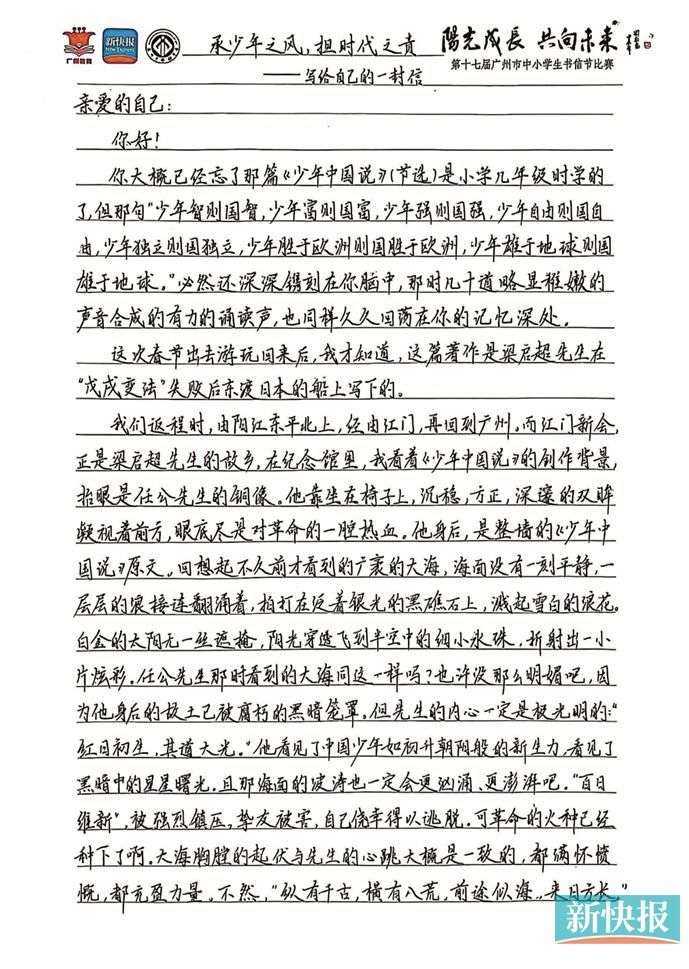 广州教育
新快报
New Express
承少年之风，担时代之责
陽光成長 共向未来
——写给自己的一封信
第十七届广州市中小学生书信节比赛
亲爱的自己：
你好！
你大概已经忘了那篇《少年中国说》（节选）是小学几年级时学的
了，但那句“少年智则国智，少年富则国富，少年强则国强，少年自由则国自
由，少年独立则国独立，少年胜于欧洲则国胜于欧洲，少年雄于地球则国
雄于地球。”必然还深深镌刻在你脑中，那时几十道略显稚嫩的
声音合成的有力的诵读声，也同样久久回荡在你的记忆深处。
这次春节出去游玩回来后，我才知道，这篇著作是梁启超先生在
“戊戌变法”失败后东渡日本的船上写下的。
我们返程时，由阳江东平北上，经由江门，再回到广州。而江门新会，
正是梁启超先生的故乡，在纪念馆里，我看着《少年中国说》的创作背景，
抬眼是任公先生的铜像。他靠坐在椅子上，沉稳，方正，深邃的双眸
凝视着前方，眼底尽是对革命的一腔热血。他身后，是整墙的《少年中
国说》原文。回想起不久前才看到的广袤的大海，海面没有一刻平静，一
层层的浪接连翻涌着，拍打在泛着银光的黑礁石上，溅起雪白的浪花。
白金的太阳无一丝遮掩，阳光穿透飞到半空中的细小水珠，折射出一小
片炫彩。任公先生那时看到的大海同这一样吗？也许没那么明媚吧，因
为他身后的故土已被腐朽的黑暗笼罩。但先生的内心一定是极光明的：“
红日初生，其道大光。”他看见了中国少年如初升朝阳般的新生力，看见了
黑暗中的星星曙光。且那海面的波涛也一定会更汹涌、更澎湃吧。“百日
维新”，被强烈镇压，挚友被害，自己侥幸得以逃脱。可革命的火种已经
种下了啊。大海胸膛的起伏与先生的心跳大概是一致的，都满怀愤
慨，都充盈力量。不然，“纵有千古，横有八荒，前途似海，来日方长。”
新快报